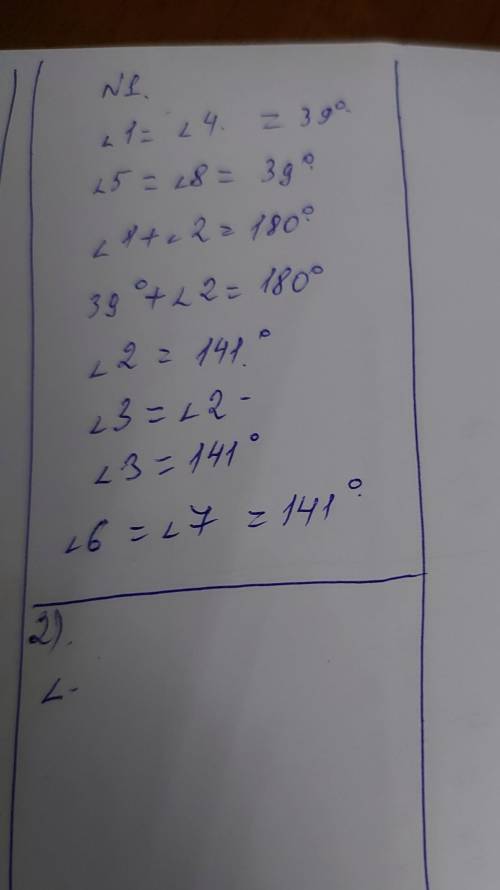 N1.
∠1 = ∠4. = 39°.
∠5 = ∠8 = 39°.
∠1 + ∠2 = 180°.
39° + ∠2 = 180°
∠2 = 141.°
∠3 = ∠2 -
∠3 = 141°
∠6 = ∠7 = 141°.
2).
∠-